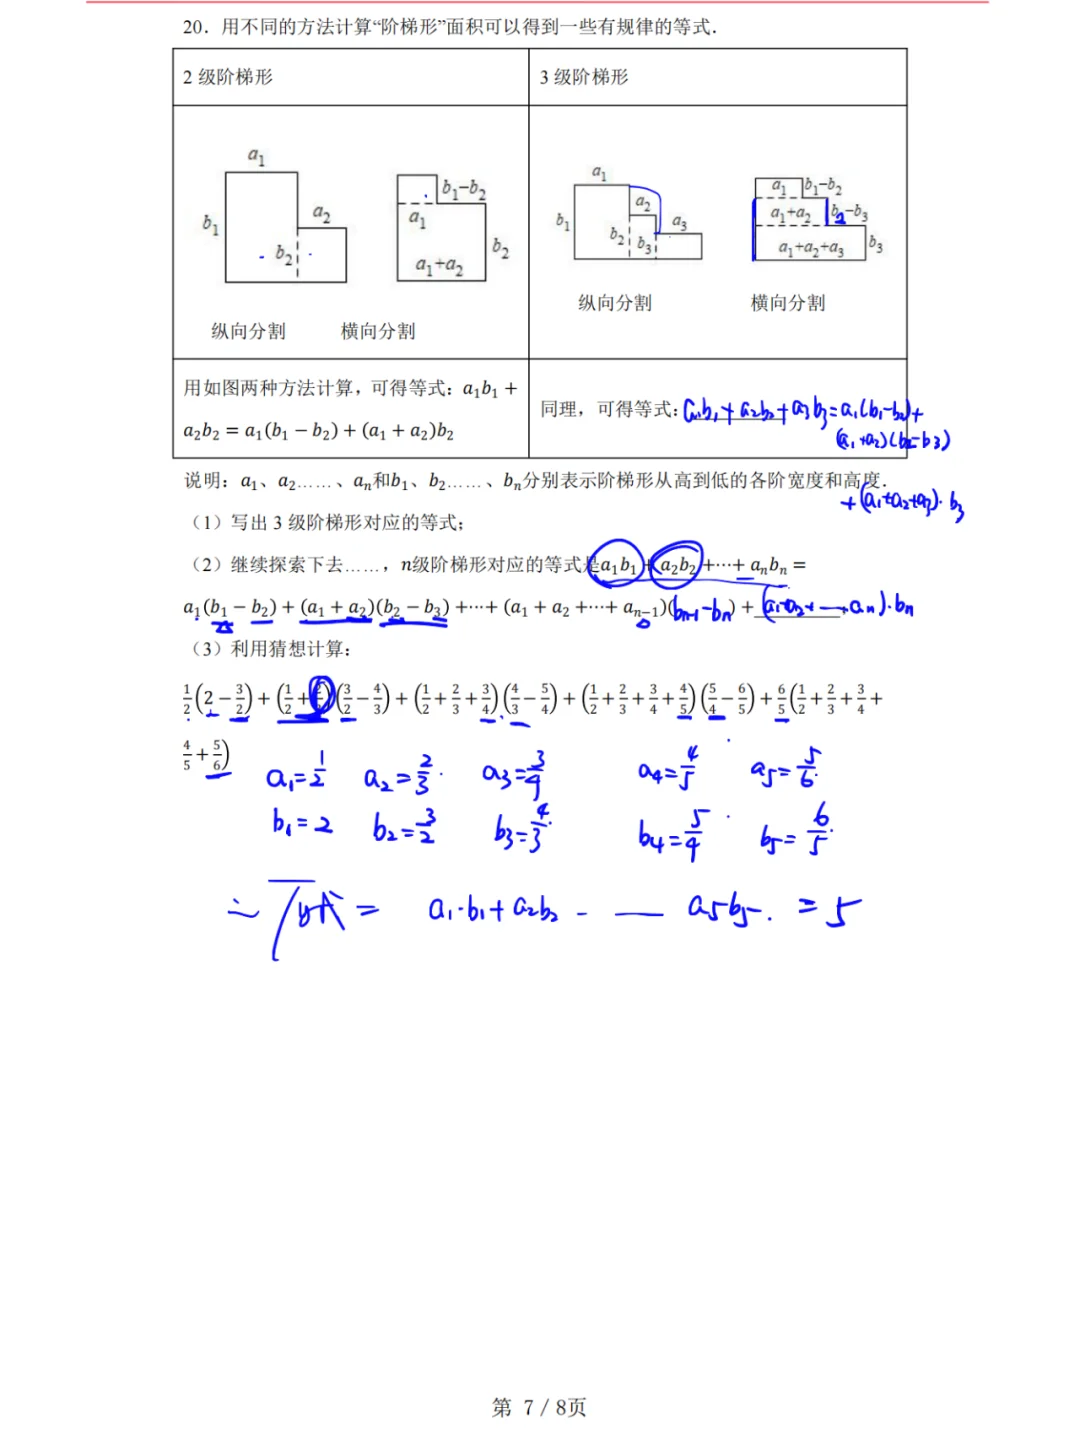 20．用不同的方法计算“阶梯形”面积可以得到一些有规律的等式．
2 级阶梯形
3 级阶梯形
a₁
b₁
a₂
b₂
b₁−b₂
a₁
b₂
a₁+a₂
纵向分割
横向分割
a₁
b₁
a₂
b₂
b₃
a₃
a₁
b₁−b₂
a₁+a₂
b₂−b₃
a₁+a₂+a₃
b₃
纵向分割
横向分割
用如图两种方法计算，可得等式：a₁b₁ +
a₂b₂ = a₁(b₁ − b₂) + (a₁ + a₂)b₂
同理，可得等式：a₁b₁+a₂b₂+a₃b₃=a₁(b₁-b₂)+
(a₁+a₂)(b₂-b₃)
+(a₁+a₂+a₃)·b₃
说明：a₁、a₂……、aₙ和b₁、b₂……、bₙ分别表示阶梯形从高到低的各阶宽度和高度．
（1）写出 3 级阶梯形对应的等式；
（2）继续探索下去……，n级阶梯形对应的等式是a₁b₁ + a₂b₂ +⋯+ aₙbₙ =
a₁(b₁ − b₂) + (a₁ + a₂)(b₂ − b₃) +⋯+ (a₁ + a₂ +⋯+ aₙ₋₁)(bₙ₋₁-bₙ) + (a₁+a₂+—+aₙ)·bₙ
（3）利用猜想计算：
1/2(2 − 3/2) + (1/2 + 2/3)(3/2 − 4/3) + (1/2 + 2/3 + 3/4)(4/3 − 5/4) + (1/2 + 2/3 + 3/4 + 4/5)(5/4 − 6/5) + 6/5(1/2 + 2/3 + 3/4 +
4/5 + 5/6)
a₁=1/2 a₂=2/3 a₃=3/4 a₄=4/5 a₅=5/6
b₁=2 b₂=3/2 b₃=4/3 b₄=5/4 b₅=6/5
= a₁·b₁+a₂b₂ - — a₅b₅. = 5
第 7 / 8页